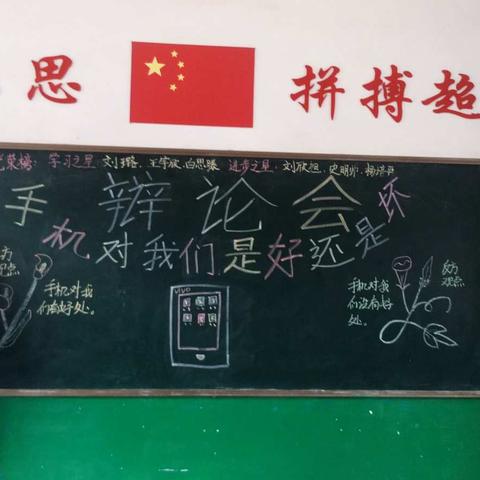 思 拼搏超
荣榜：学习之星 刘玉路、王宇欣、白思璐 进步之星：刘欣旭、史明
辩论会
手机对我们是好还是坏
方
观点
手机对我
们有好
处。
vivo
手机对我
们没有好
处。
反方
观点